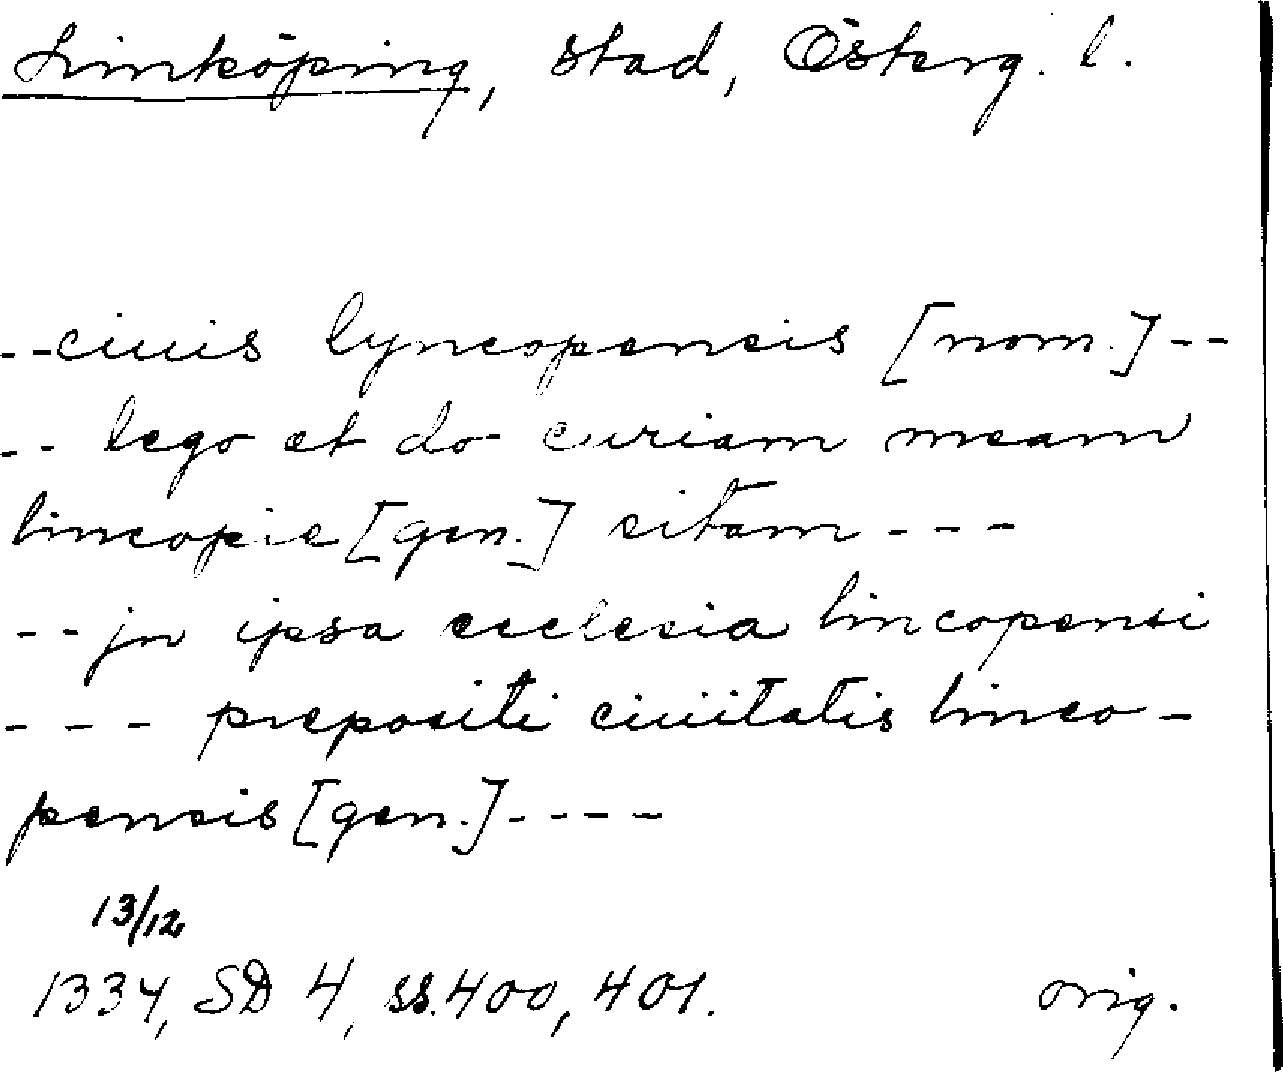 Linköping, stad, Österg. l.
--ciuis lyncopensis [nom.]--
-- lego et do curiam meam
lincopie [gen.] sitam ---
--jn ipsa ecclesia lincopensi
--- prepositi ciuitatis linco-
pensis [gen.]----
13/12
1334, SD 4, ss. 400, 401. orig.